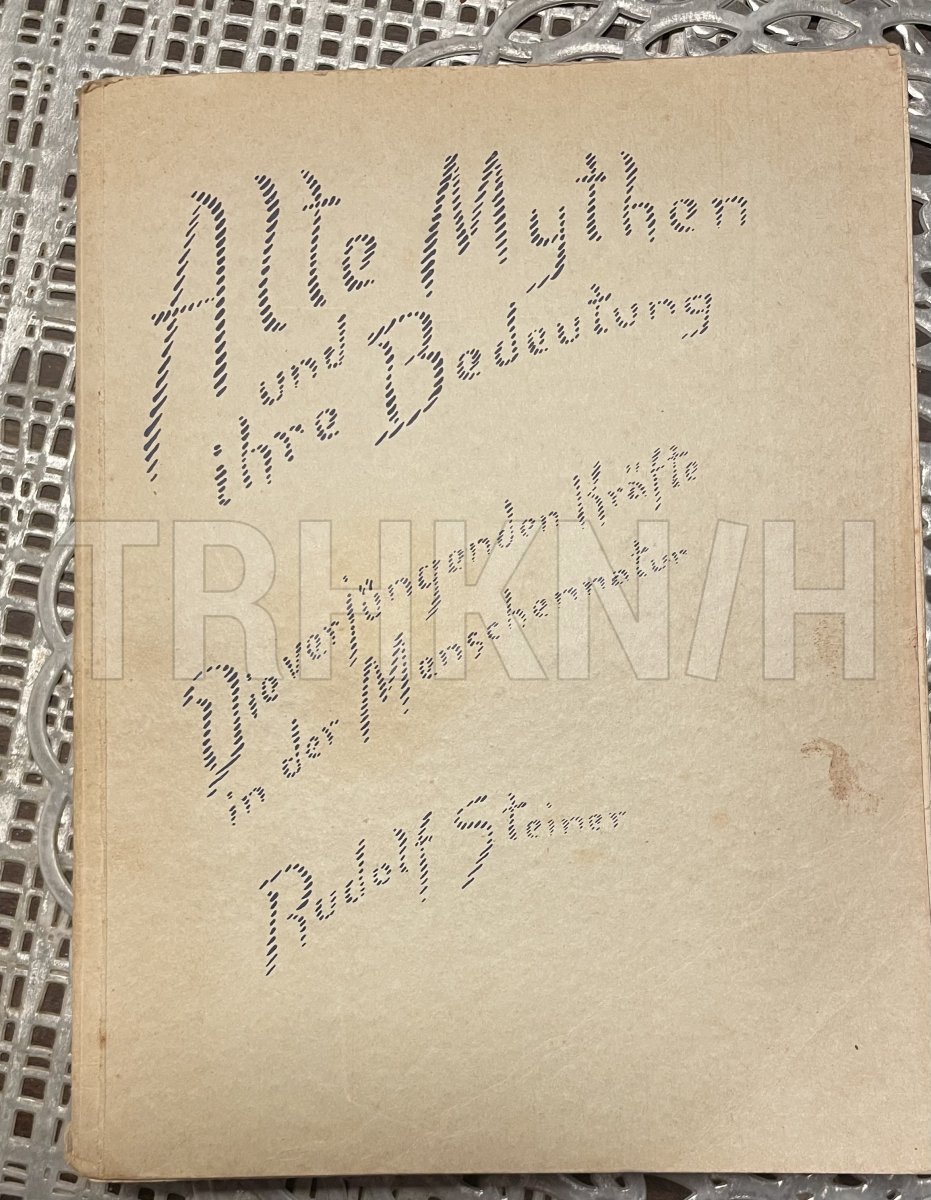 Alte Mythen
und
ihre Bedeutung
Die verjüngenden Kräfte
in der Menschennatur
Rudolf Steiner
TRHKN/H